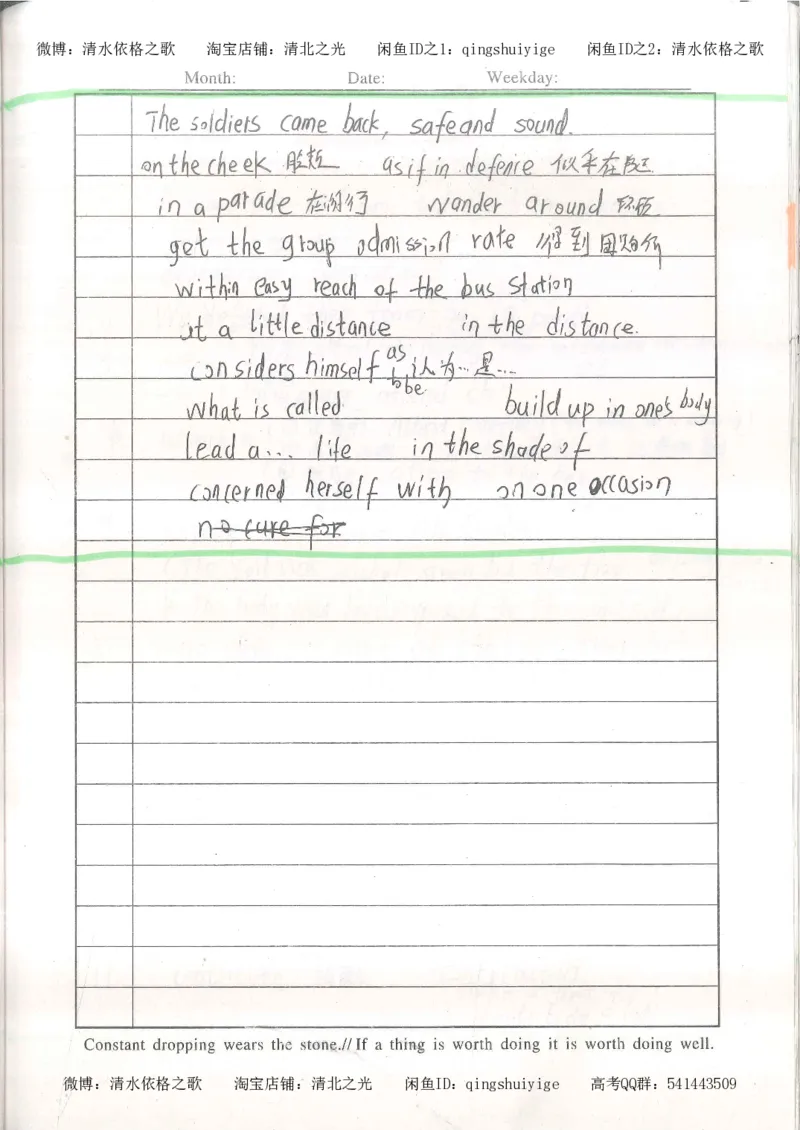 微博：清水依格之歌 淘宝店铺：清北之光 闲鱼ID之1：qingshuiyige 闲鱼ID之2：清水依格之歌
Month: Date: Weekday:
The soldiers came back, safe and sound.
on the cheek 脸颊 as if in defence 似乎在
in a parade 在游行 wander around
get the group admission rate 得到团购价
within easy reach of the bus station
at a little distance in the distance.
considers himself as / to be 认为…是…
what is called build up in one's body
lead a... life in the shade of
concerned herself with on one occasion
no cure for
Constant dropping wears the stone.//If a thing is worth doing it is worth doing well.
微博：清水依格之歌 淘宝店铺：清北之光 闲鱼ID：qingshuiyige 高考QQ群：541443509